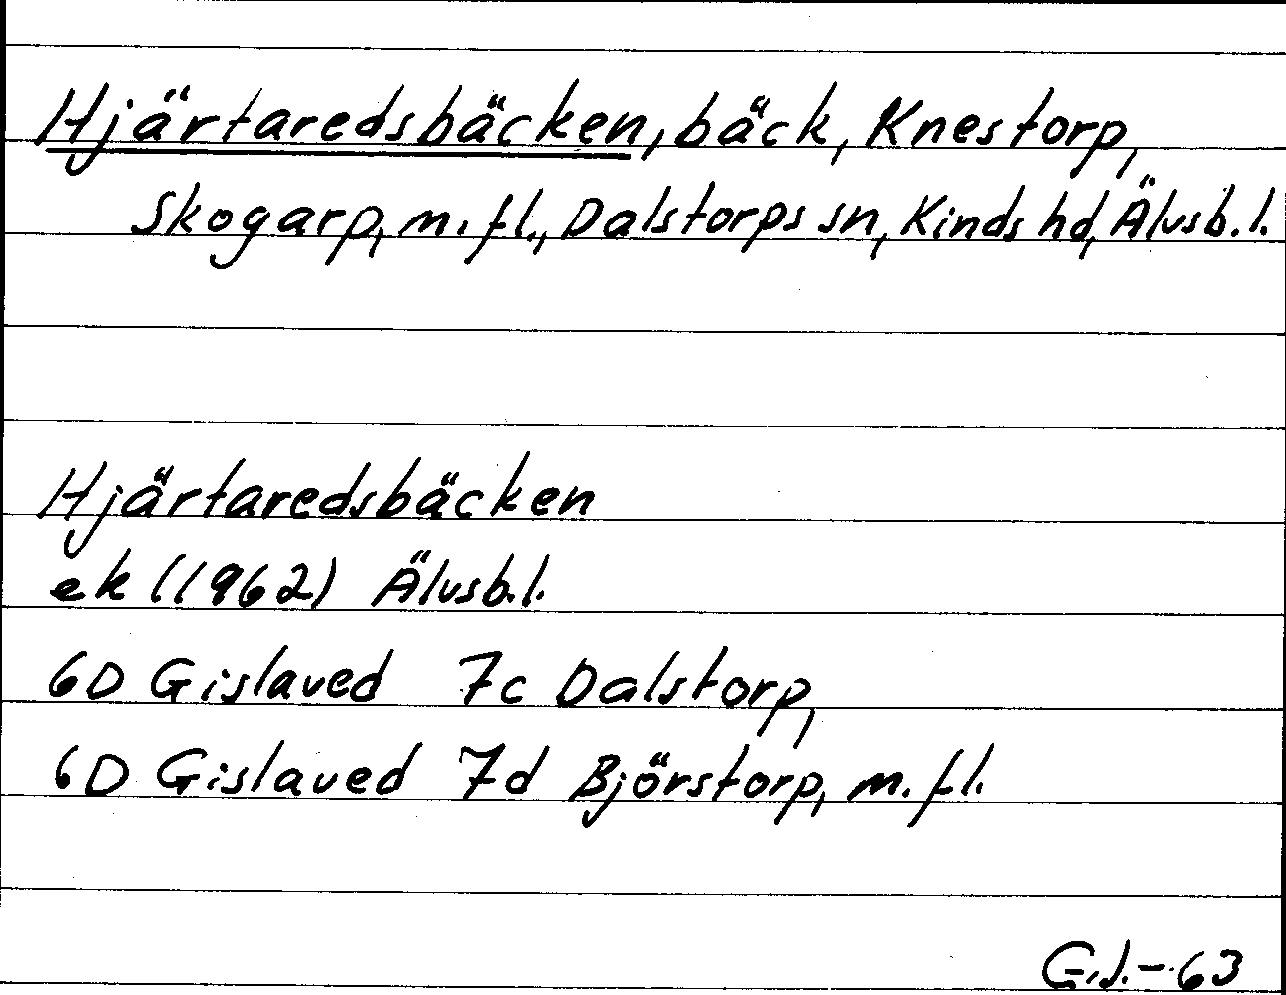 Hjärtaredsbäcken, bäck, Knestorp,
Skogarp, m.fl., Dalstorps sn, Kinds hd, Älvsb.l.
Hjärtaredsbäcken
ek (1962) Älvsb.l.
6D Gislaved 7c Dalstorp,
6D Gislaved 7d Björstorp, m.fl.
G.J.-63